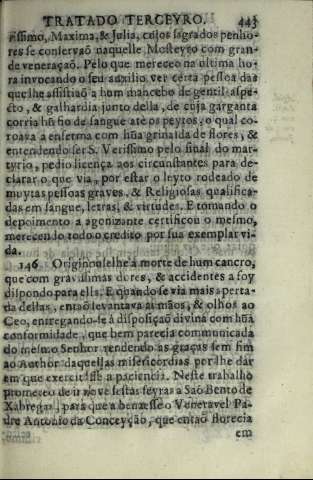 TRATADO TERCEYRO. 443
rissimo, Maxima, & Julia, cujos sagrados penho-
res se conservaõ naquelle Mosteyro com gran-
de veneraçaõ. Pelo que mereceo na ultima ho-
ra invocando o seu auxilio ver certa pessoa das
que lhe assistiaõ a hum mancebo de gentil aspe-
cto, & galhardia junto della, de cuja garganta
corria hũ fio de sangue atè os peytos, o qual co-
roava a enferma com hũa grinalda de flores, &
entendendo ser S. Verissimo pelo final do mar-
tyrio, pedio licença aos circunstantes para de-
clarar o que via, por estar o leyto rodeado de
muytas pessoas graves, & Religiosas qualifica-
das em sangue, letras, & virtudes. E tomando o
depoimento a agonizante certificou o mesmo,
merecendo todo o credito por sua exemplar vi-
da.
146 Originouselhe a morte de hum cancro,
que com gravissimas dores, & accidentes a foy
dispondo para ella. E quando se via mais aperta-
da dellas, entaõ levantava as mãos, & olhos ao
Ceo, entregando-se à disposiçaõ divina com hũa
conformidade, que bem parecia communicada
do mesmo Senhor rendendo as graças sem fim
ao Author daquellas misericordias por lhe dar
em que exercitasse a paciencia. Neste trabalho
prometeo de ir nove sestas feyras a Saõ Bento de
Xabregas, para que a benzesse o Veneravel Pa-
dre Antonio da Conceyçaõ, que entaõ florecia
em